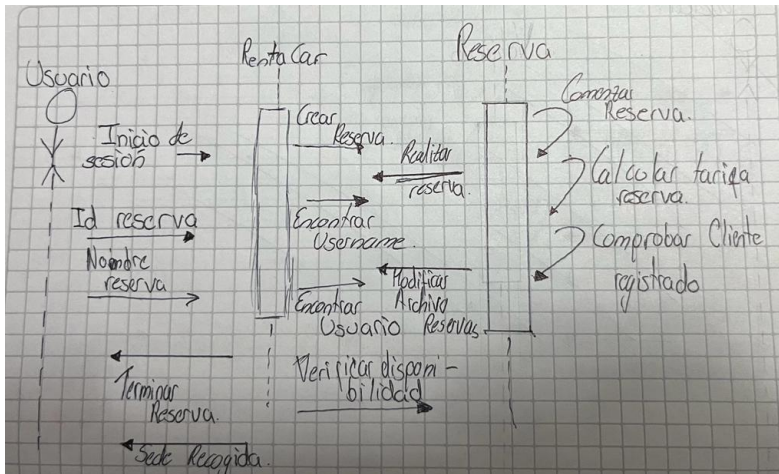 Usuario
Renta Car
Reserva
Inicio de
sesión
Id reserva
Nombre
reserva
Terminar
Reserva.
Sede Recogida.
Crear
Reserva.
Realizar
reserva.
Encontrar
Username.
Modificar
Archivo
Reservas
Encontrar
Usuario
Verificar disponi-
bilidad
Comenzar
Reserva.
Calcular tarifa
reserva.
Comprobar Cliente
registrado